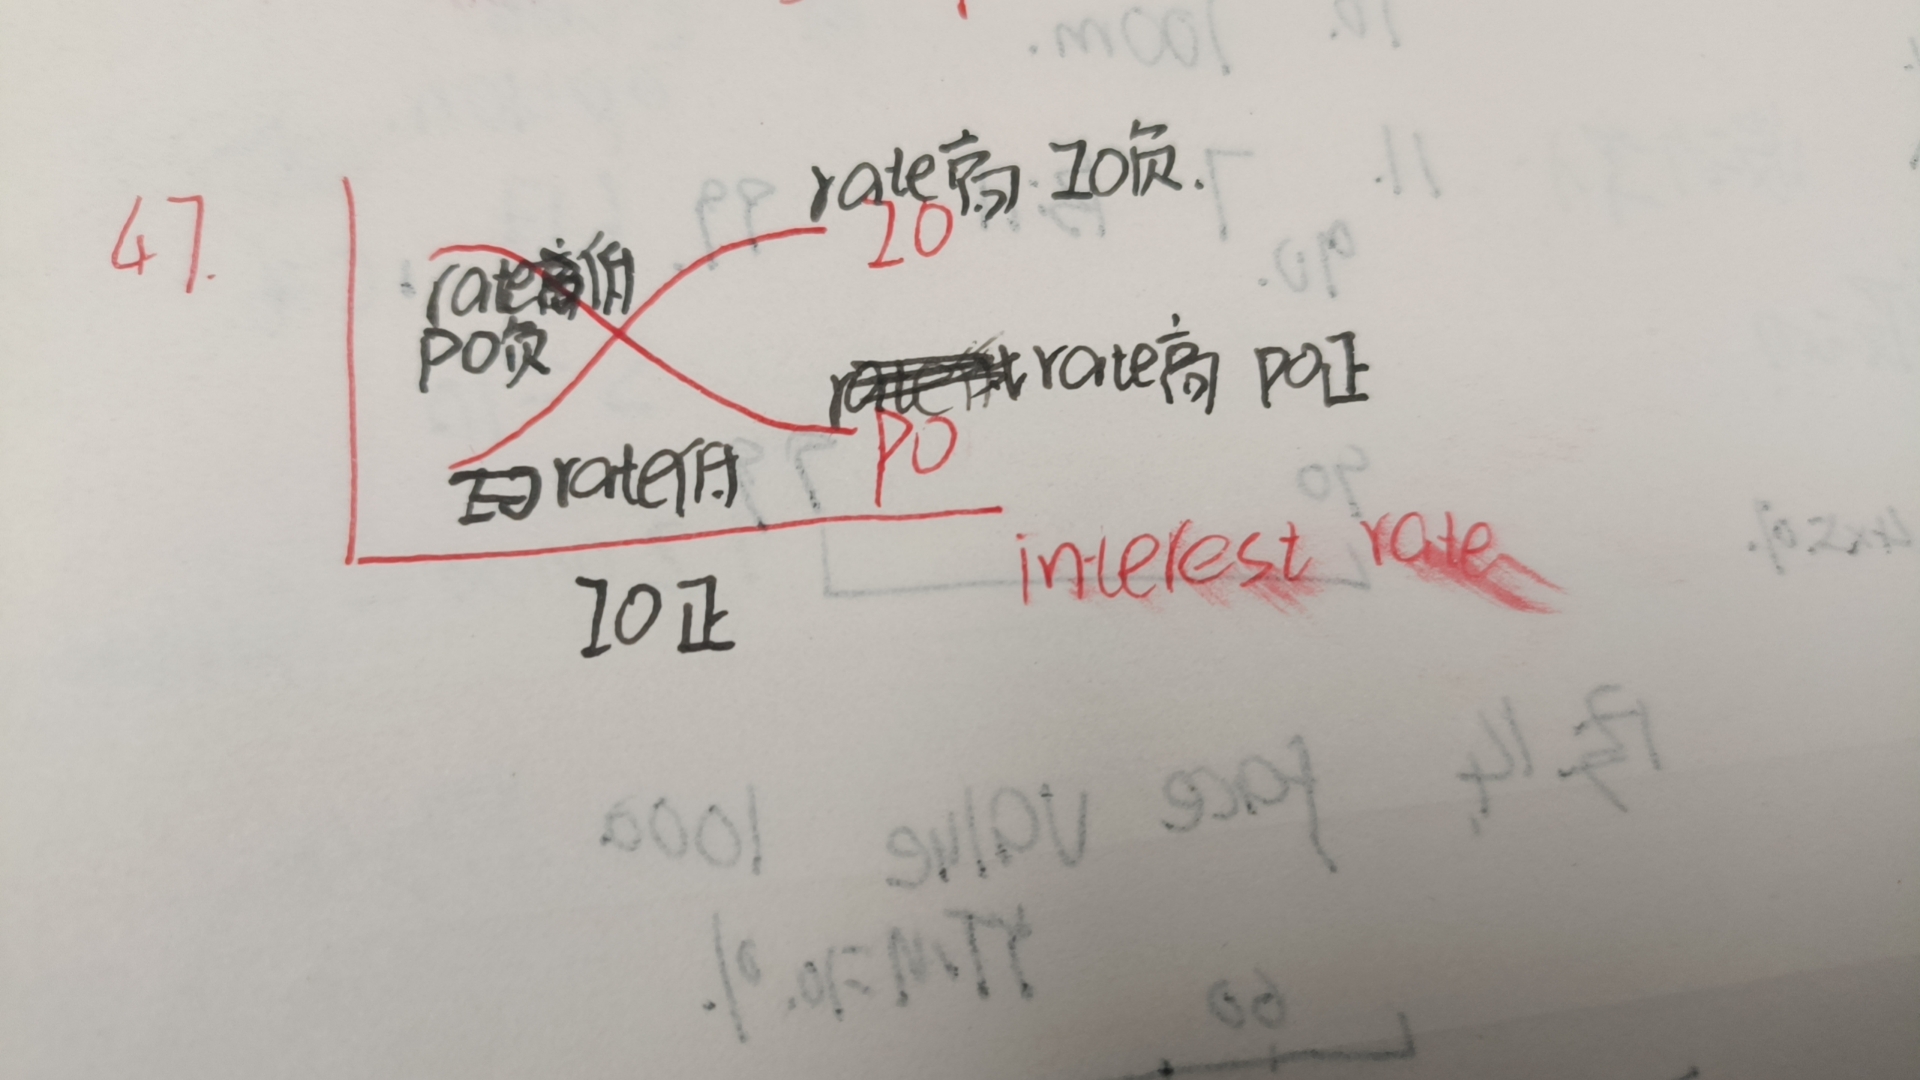 47.
rate高 IO负.
IO
rate低
PO负
rate高 PO正
PO
rate低
interest rate
IO正
100m.
90.
90
Face value 1000
YTM=10.%
60